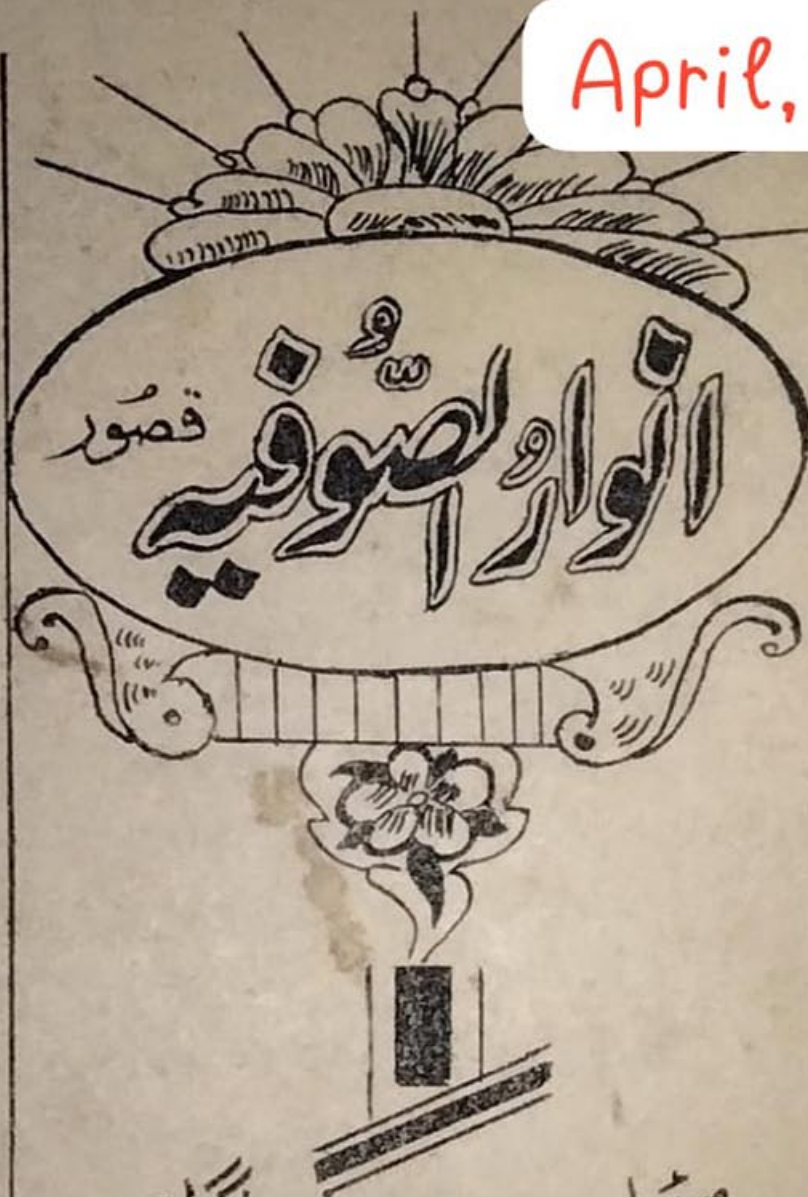 April,
انوارُ الصُّوفیہ
قصُور